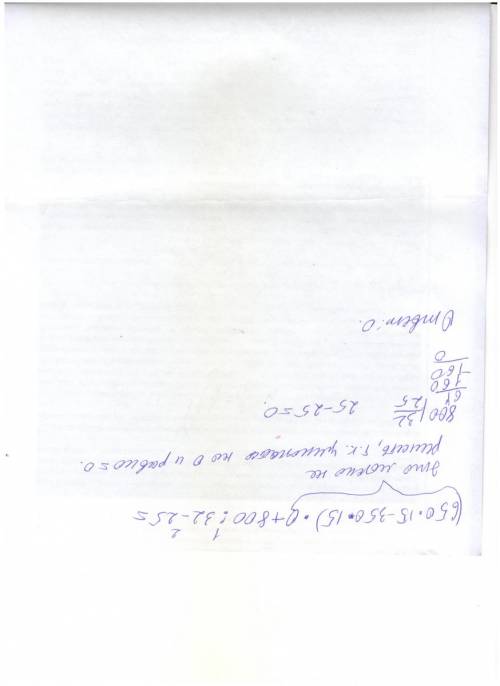 (650•15-350•15)•0+800:32-25=
1 2
это можно не
решать, т.к. умножаем на 0 и равно=0.
800|32
64 25
160
-160
0
25-25=0.
Ответ: 0.